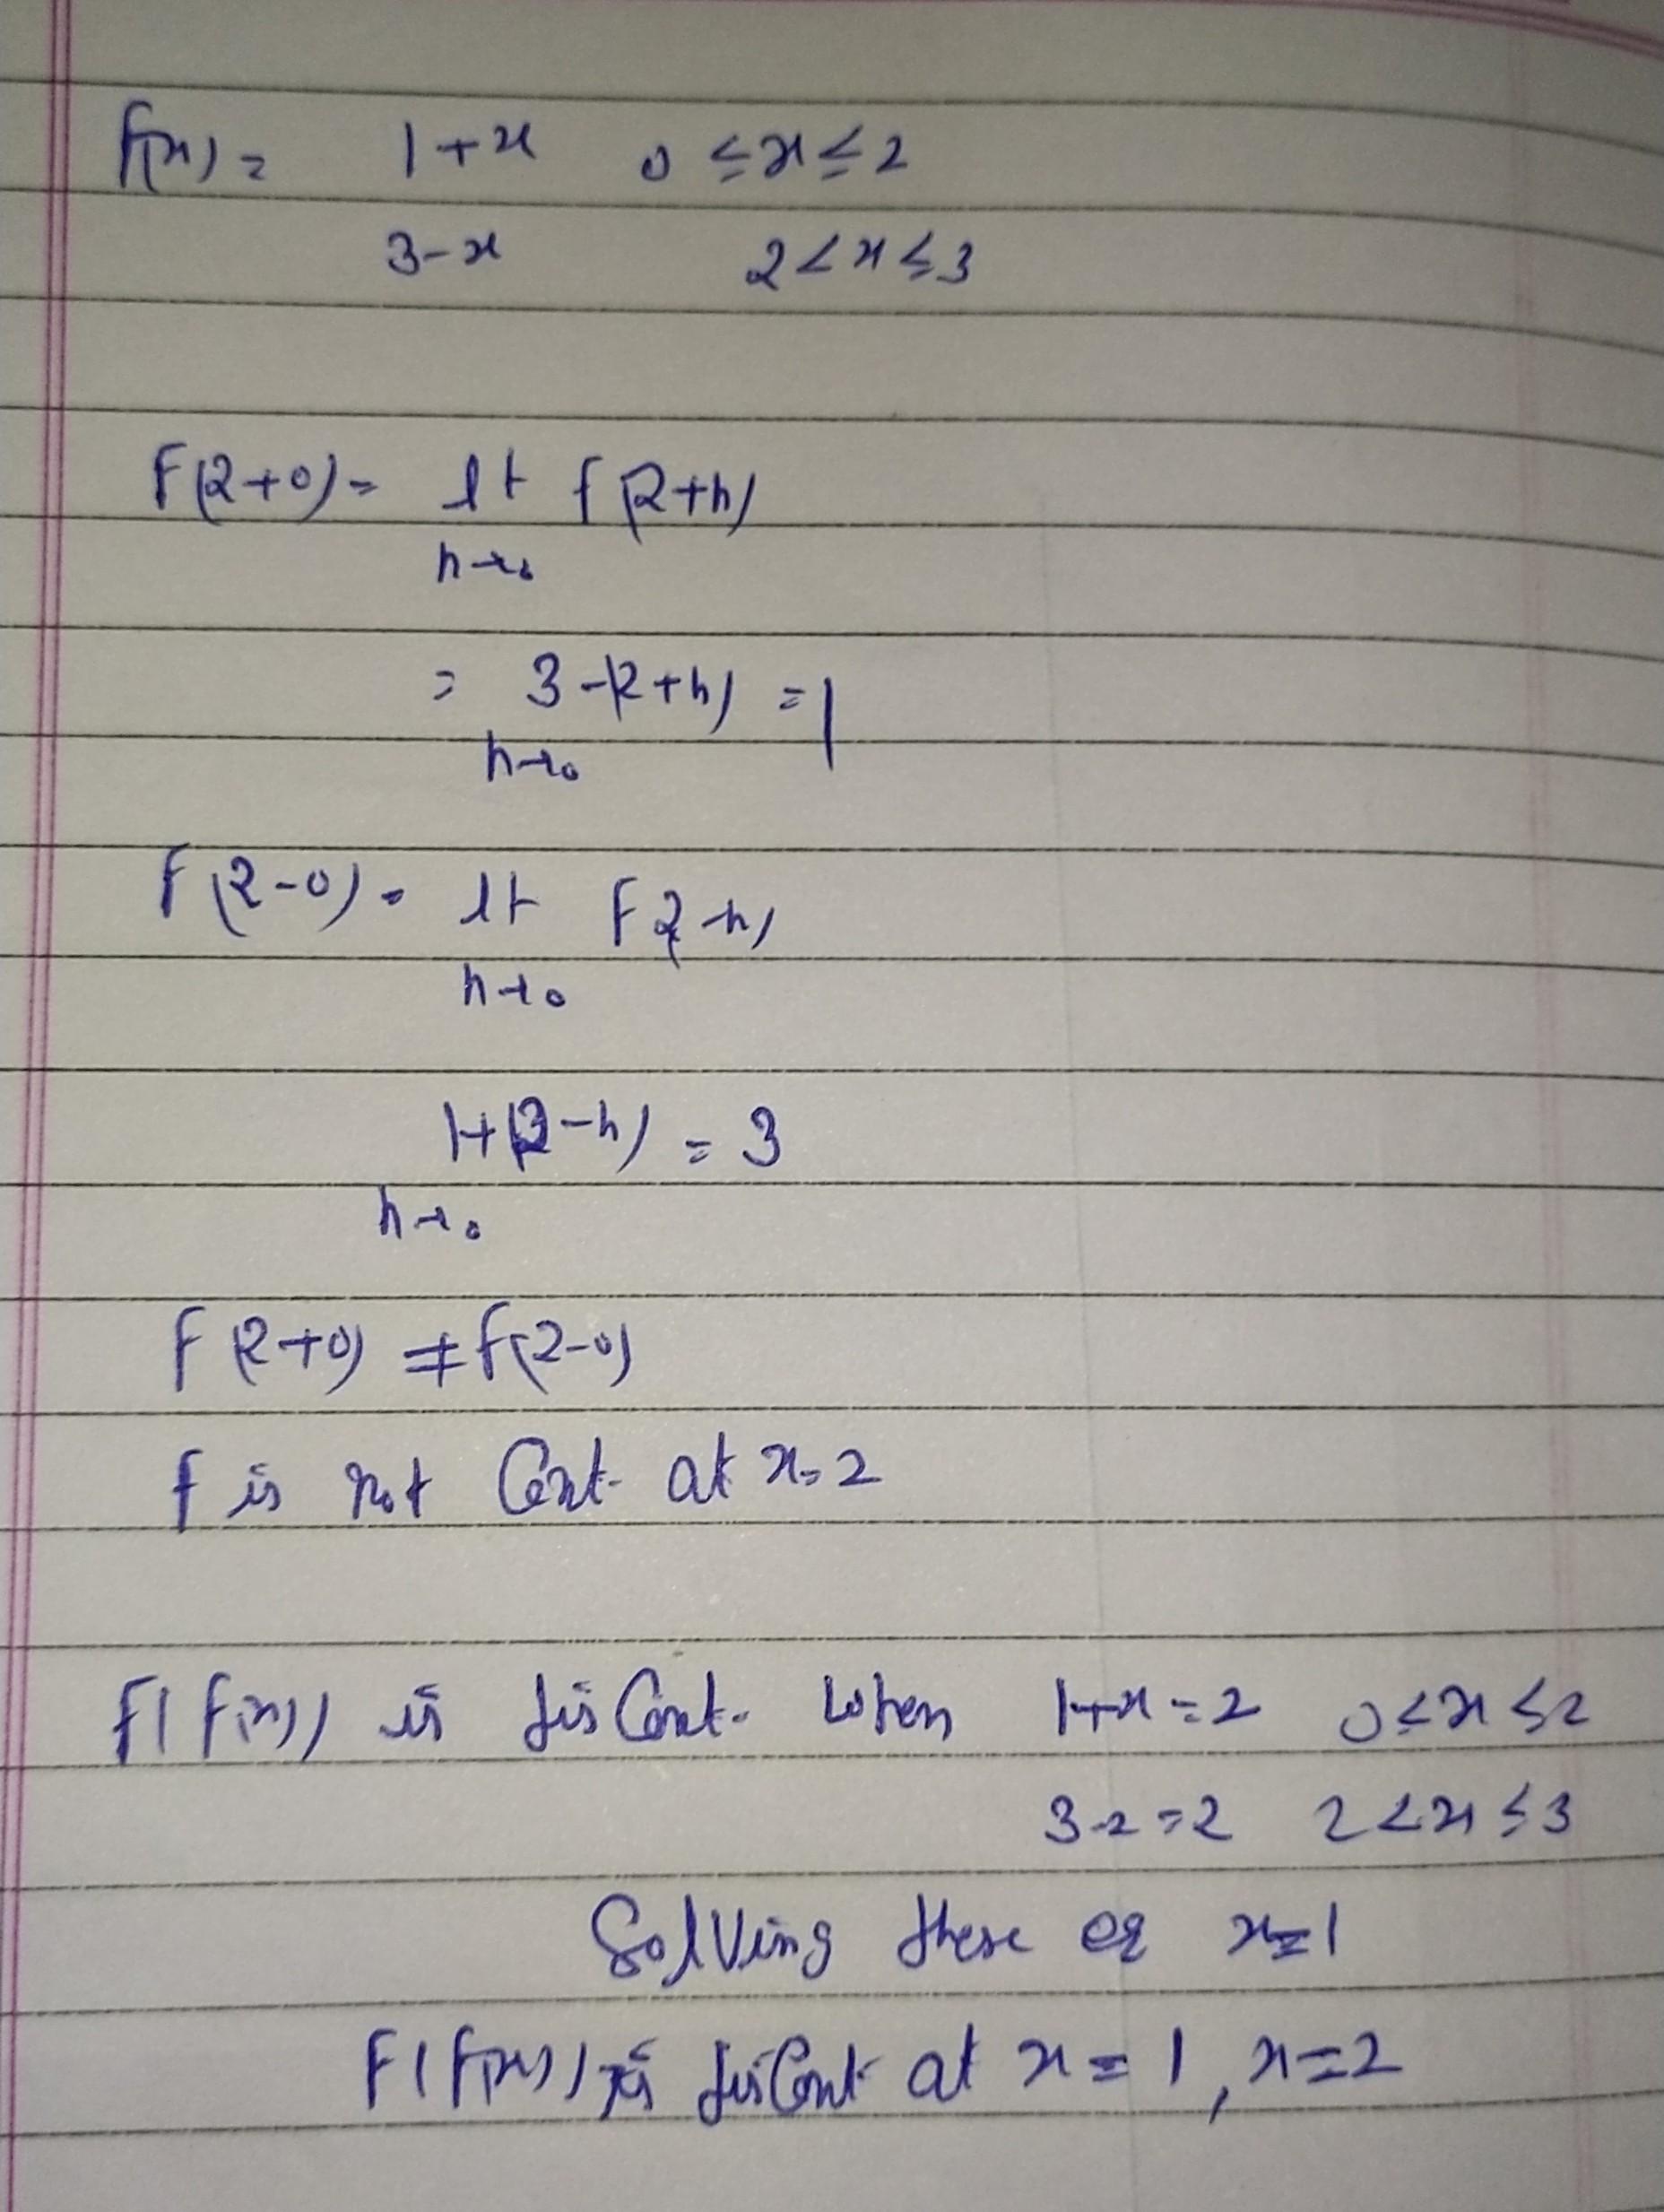 f(x) = 1+x 0 ≤ x ≤ 2
3-x 2 < x ≤ 3
F(2+0) = lt f(2+h)
h→0
= 3-(2+h) = 1
h→0
F(2-0) = lt F(2-h)
h→0
1+(2-h) = 3
h→0
f(2+0) ≠ f(2-0)
f is not Cont. at x=2
f(f(x)) is disCont. when 1+x=2 0≤x≤2
3-x=2 2<x≤3
Solving these eq x=1
F(f(x)) is disCont at x=1, x=2